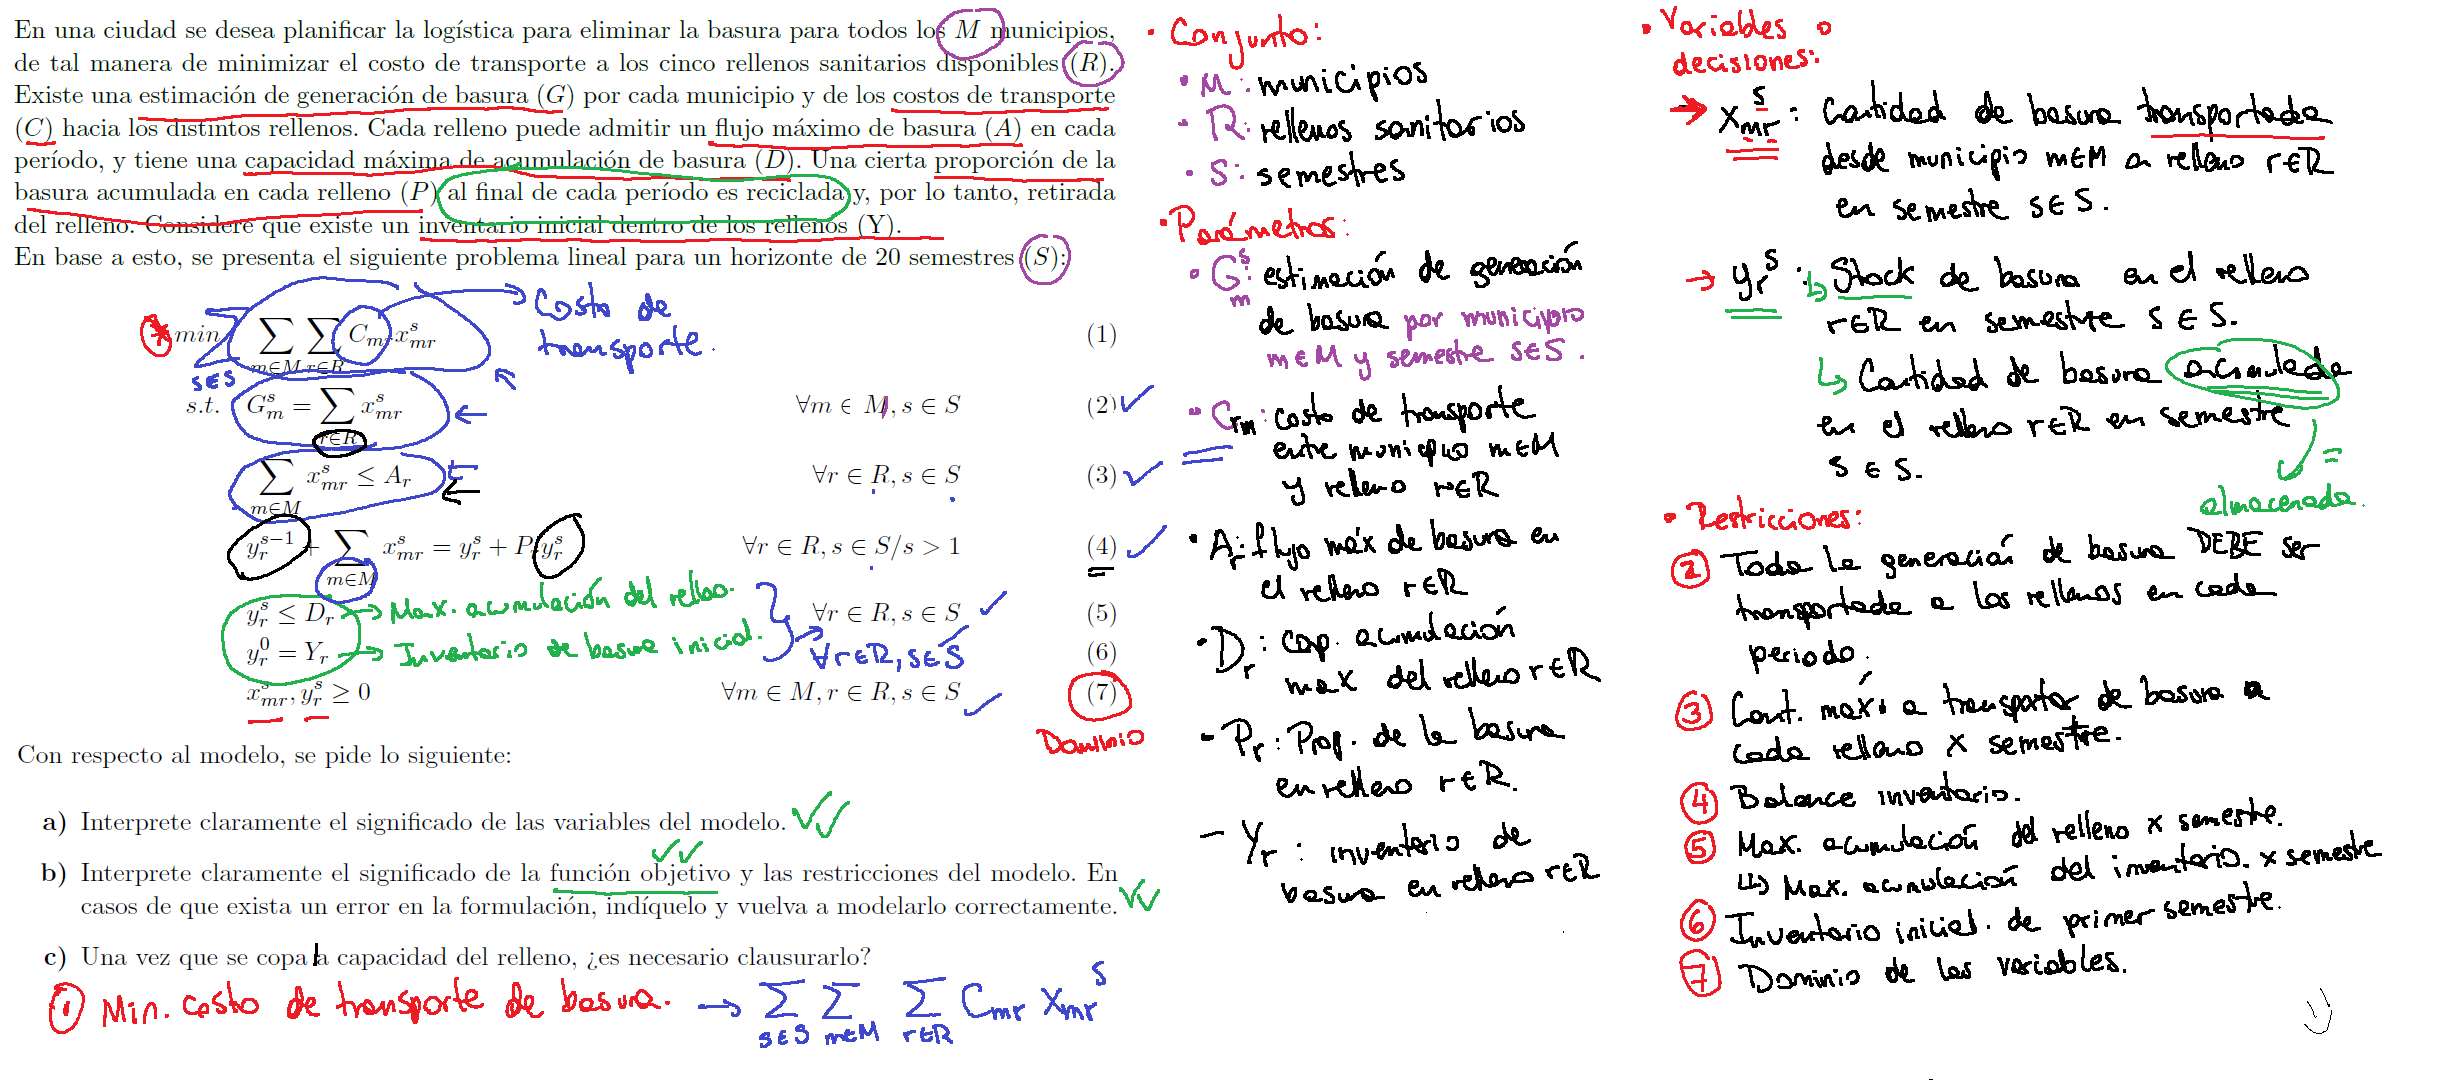 En una ciudad se desea planificar la logística para eliminar la basura para todos los M municipios,
de tal manera de minimizar el costo de transporte a los cinco rellenos sanitarios disponibles (R).
Existe una estimación de generación de basura (G) por cada municipio y de los costos de transporte
(C) hacia los distintos rellenos. Cada relleno puede admitir un flujo máximo de basura (A) en cada
período, y tiene una capacidad máxima de acumulación de basura (D). Una cierta proporción de la
basura acumulada en cada relleno (P) al final de cada período es reciclada y, por lo tanto, retirada
del relleno. Considere que existe un inventario inicial dentro de los rellenos (Y).
En base a esto, se presenta el siguiente problema lineal para un horizonte de 20 semestres (S):
* min ∑_{s∈S} ∑_{m∈M} ∑_{r∈R} C_{mr} x_{mr}^s (1)
→ Costo de
transporte.
s.t. G_m^s = ∑_{r∈R} x_{mr}^s ∀m ∈ M, s ∈ S (2) ✓
∑_{m∈M} x_{mr}^s ≤ A_r ∀r ∈ R, s ∈ S (3) ✓
y_r^{s−1} + ∑_{m∈M} x_{mr}^s = y_r^s + P_r y_r^s ∀r ∈ R, s ∈ S/s > 1 (4) ✓
y_r^s ≤ D_r → Max. acumulación del relleno. ∀r ∈ R, s ∈ S ✓ (5)
y_r^0 = Y_r → Inventario de basura inicial. ∀r∈R, s∈S (6)
x_{mr}^s, y_r^s ≥ 0 ∀m ∈ M, r ∈ R, s ∈ S ✓ (7)
Dominio
Con respecto al modelo, se pide lo siguiente:
a) Interprete claramente el significado de las variables del modelo. ✓✓
b) Interprete claramente el significado de la función objetivo y las restricciones del modelo. En
casos de que exista un error en la formulación, indíquelo y vuelva a modelarlo correctamente. ✓✓
c) Una vez que se copa la capacidad del relleno, ¿es necesario clausurarlo?
① Min. costo de transporte de basura. → ∑_{s∈S} ∑_{m∈M} ∑_{r∈R} C_{mr} X_{mr}^s
• Conjunto:
• M: municipios
• R: rellenos sanitarios
• S: semestres
• Parámetros:
• G_m^s: estimación de generación
de basura por municipio
m∈M y semestre s∈S.
• C_{rm}: costo de transporte
entre municipio m∈M
y relleno r∈R
• A_r: flujo máx de basura en
el relleno r∈R
• D_r: cap. acumulación
max del relleno r∈R
- P_r: Prop. de la basura
en relleno r∈R.
- Y_r: inventario de
basura en relleno r∈R
• Variables o
decisiones:
→ X_{mr}^s: Cantidad de basura transportada
desde municipio m∈M a relleno r∈R
en semestre s∈S.
→ y_r^s: ↳ Stock de basura en el relleno
r∈R en semestre s∈S.
↳ Cantidad de basura acumulada
en el relleno r∈R en semestre
s∈S.
=
almacenada.
• Restricciones:
② Toda la generación de basura DEBE ser
transportada a los rellenos en cada
periodo.
③ Cant. máx a transportar de basura a
cada relleno x semestre.
④ Balance inventario.
⑤ Max. acumulación del relleno x semestre.
↳ Max. acumulación del inventario. x semestre
⑥ Inventario inicial. de primer semestre.
⑦ Dominio de las variables.